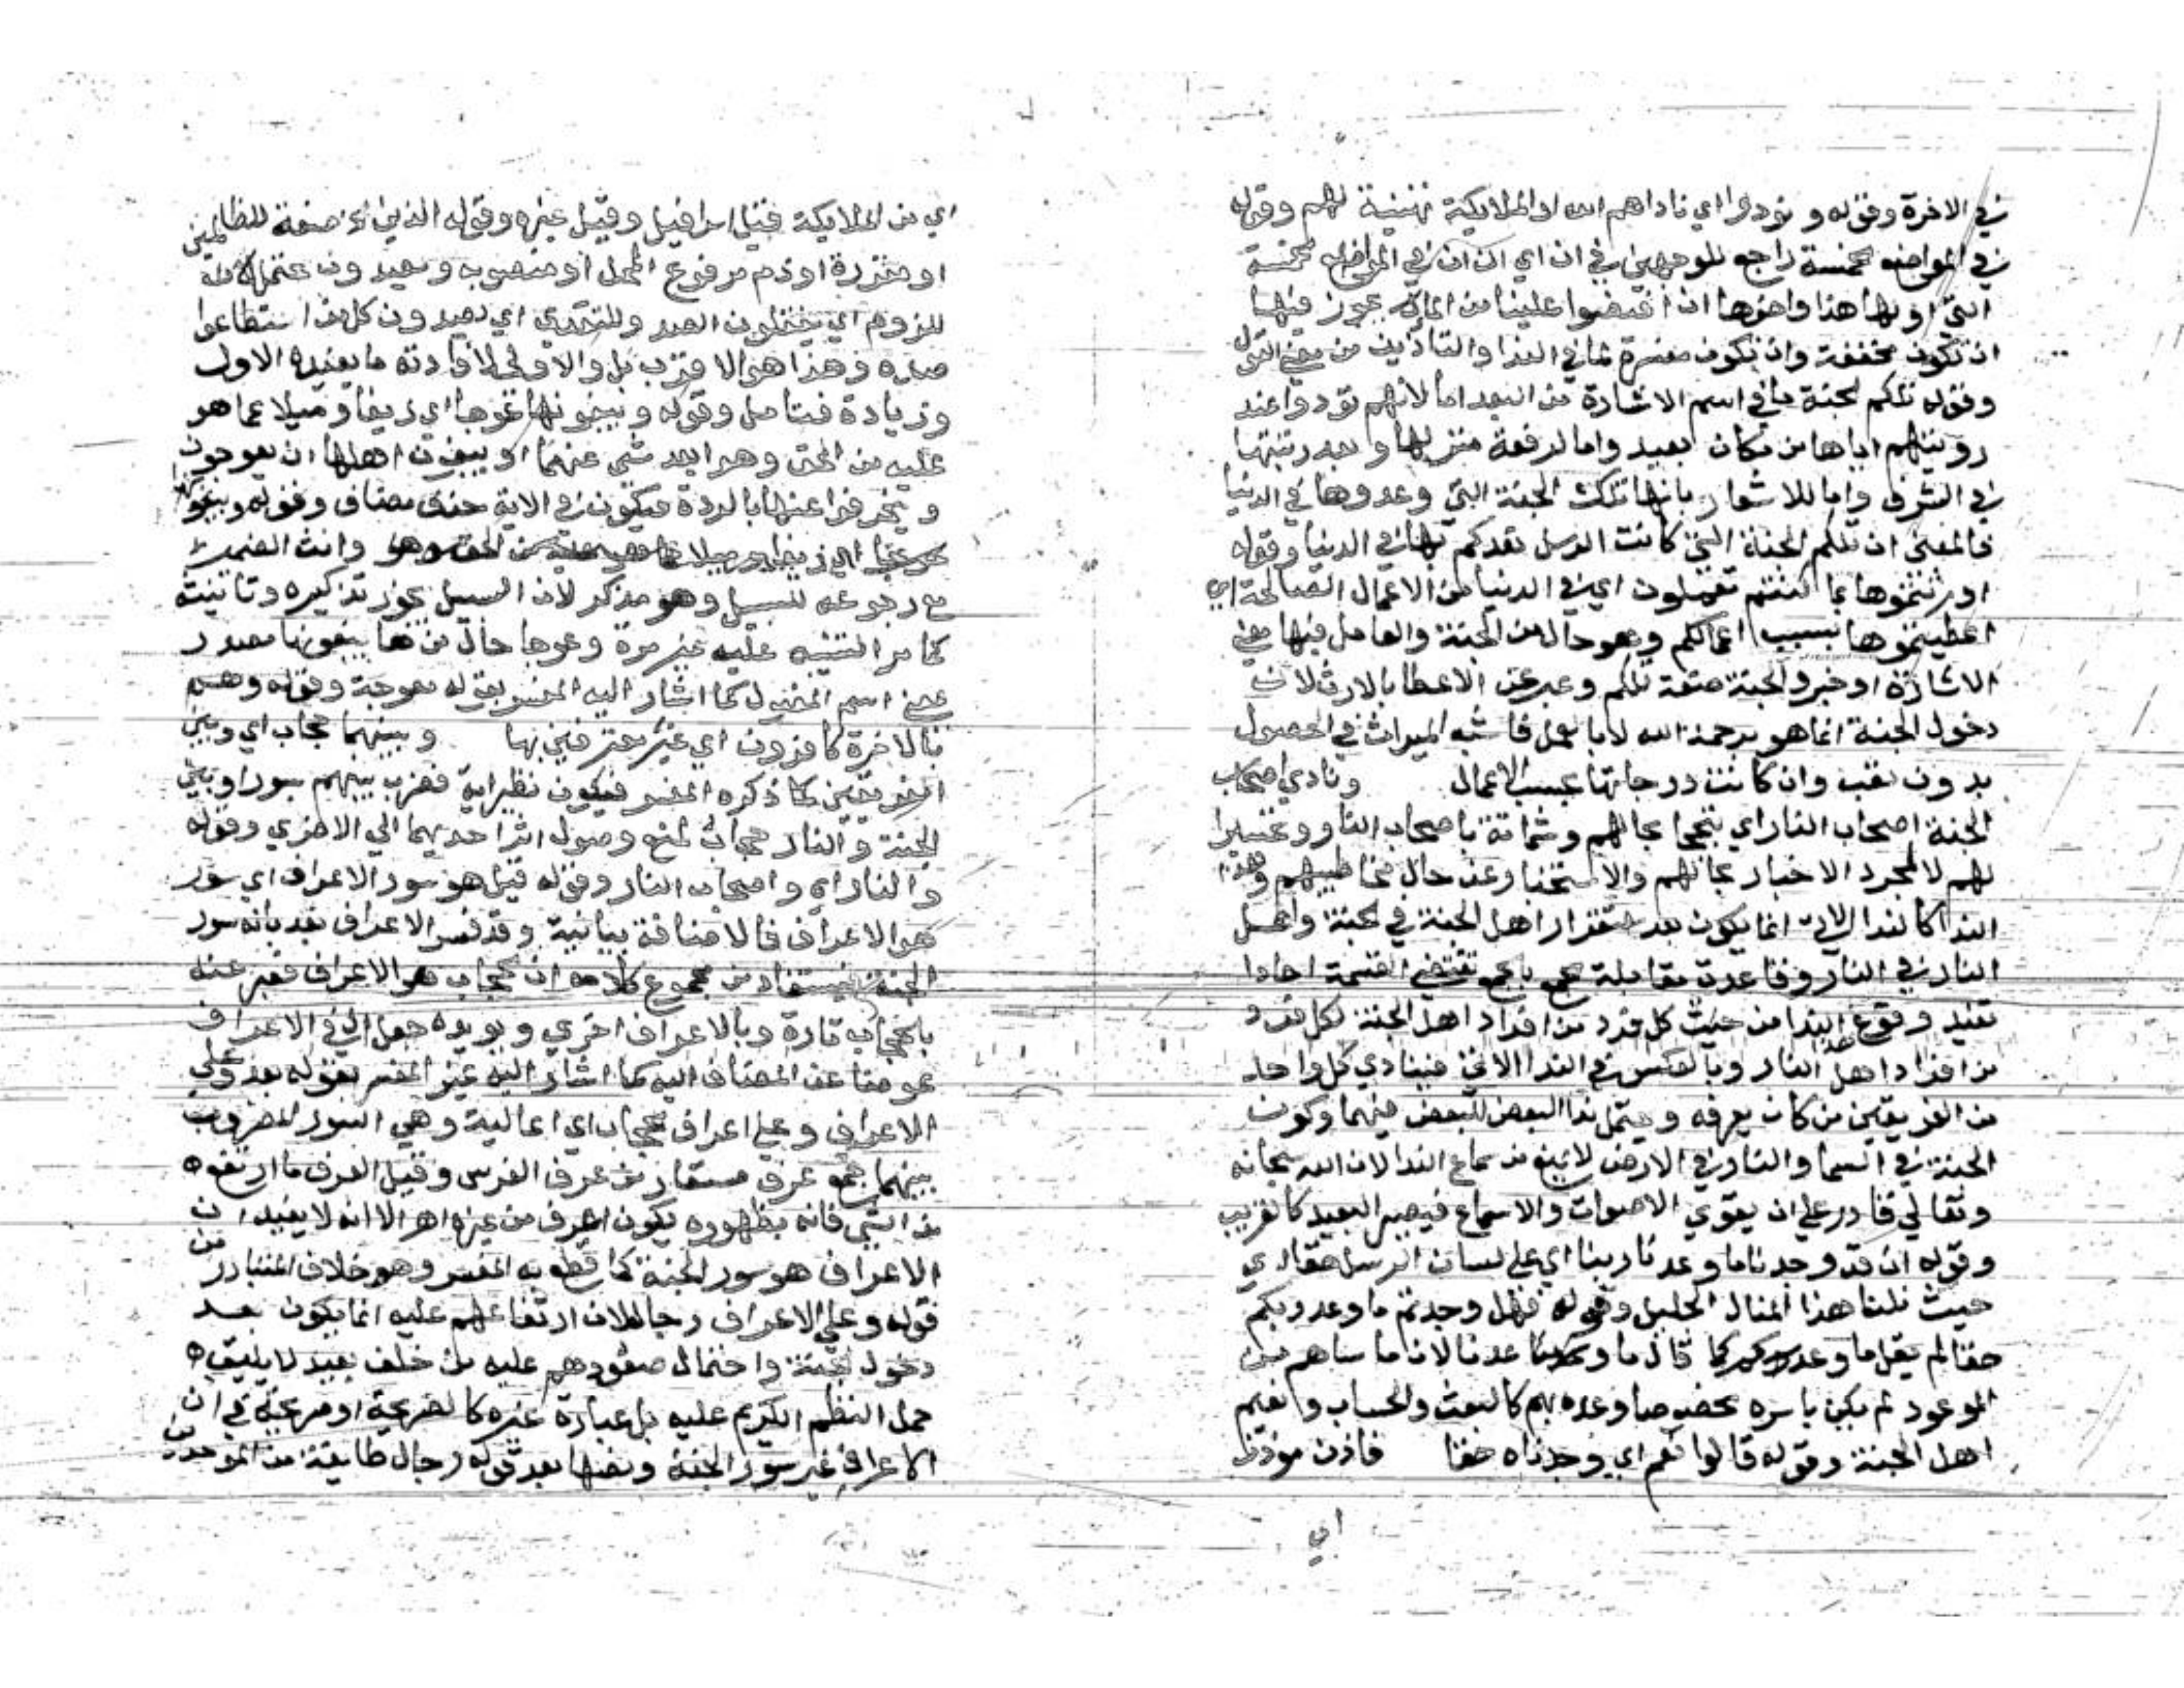 في الاخرة وقوله ونودوا اي ناداهم الله او الملايكة تهنية لهم وقوله
في المواضع الخمسة راجع للوجهين في ان اي ان ان في المواضع الخمسة
التي اولها هذا واخرها ان افيضوا علينا من الماء يجوز فيها
ان تكون مخففة وان تكون مفسرة لما في الندا والتاذين من معنى القول
وقوله تلكم الجنة ما في اسم الاشارة من البعد اما لانهم نودوا عند
رويتهم اياها من مكان بعيد واما لرفعة منزلها وبعد رتبتها
في الشرف واما للاشعار بانها تلك الجنة التي وعدوها في الدنيا
فالمعنى ان تلكم الجنة التي كانت الرسل تعدكم بها في الدنيا وقوله
اورثتموها بما كنتم تعملون اي في الدنيا من الاعمال الصالحة اي
اعطيتموها بسبب اعمالكم وهو حال من الجنة والعامل فيها معنى
الاشارة او خبر والجنة صفة تلكم وعبر عن الاعطا بالارث لان
دخول الجنة انما هو برحمة الله لا بالعمل فاشبه الميراث في الحصول
بدون تعب وان كانت درجاتها بحسب الاعمال ونادي اصحاب
الجنة اصحاب النار اي تبجحا بحالهم وشماتة باصحاب النار وتحسيرا
لهم لا لمجرد الاخبار بحالهم والاستخبار عن حال مخاطبيهم وهذا
الندا كالندا الاتي انما يكون بعد استقرار اهل الجنة في الجنة واهل
النار في النار وقاعدة مقابلة الجمع بالجمع تقتضي القسمة احادا
تفيد وقوع الندا من حيث كل فرد من افراد اهل الجنة لكل فرد
من افراد اهل النار وبالعكس في الندا الاتي فينادي كل واحد
من الفريقين من كان يعرفه ويحتمل ندا البعض للبعض فيهما وكون
الجنة في السما والنار في الارض لا يمنع من سماع الندا لان الله سبحانه
وتعالي قادر علي ان يقوي الاصوات والاسماع فيصير البعيد كالقريب
وقوله ان قد وجدنا ما وعدنا ربنا اي على لسان الرسل حقا اي
حيث نلنا هذا المنال الجليل وقوله فهل وجدتم ما وعد ربكم
حقا لم يقل ما وعدكم كما قال ما وعدنا لان ما ساهم من
الموعود لم يكن باسره مخصوصا وعده بهم كالبعث والحساب ونعيم
اهل الجنة وقوله قالوا نعم اي وجدناه حقا فاذن موذن
اي
اي من الملايكة قيل اسرافيل وقيل غيره وقوله الذين صفة للظالمين
او مقررة او ذم مرفوع المحل او منصوبه ويصدون يحتمل كونه
للزوم اي يفعلون الصد وللتعدي اي يصدون كل من استطاعوا
صده وهذا هو الاقرب بل والاولى لافادته ما يفيده الاول
وزيادة فتامل وقوله ويبغونها عوجا اي زيغا وميلا عما هو
عليه من الحق وهو ابعد شي عنهما او يبغون اهلها ان يعوجون
وينحرفوا عنها بالردة فيكون في الاية حذف مضاف وقوله ويبغونها
وانث الضمير
مع رجوعه للسبيل وهو مذكر لان السبيل يجوز تذكيره وتانيثه
كما مر التنبيه عليه غير مرة وعوجا حال من ها يبغونها مصدر
بمعنى اسم المفعول كما اشار اليه المفسر بقوله معوجة وقوله وهم
بالاخرة كافرون اي غير معترفين بها وبينهما حجاب اي وبين
الفريقين كما ذكره المفسر فيكون نظير اية فضرب بينهم بسور او بين
الجنة والنار حجاب لمنع وصول اثر احديهما الي الاخري وقوله
والنار اي واصحاب النار وقوله قيل هو سور الاعراف اي سور
هو الاعراف فالاضافة بيانية وقد فسر الاعراف بعد بانه سور
الجنة فيستفاد من مجموع كلامه ان الحجاب هو الاعراف فعبر عنه
بالحجاب تارة وبالاعراف اخري ويويده جعل ال في الاعراف
عوضا عن المضاف اليه كما اشار اليه غير المفسر بقوله بعد وعلي
الاعراف وعلى اعراف الحجاب اي اعاليه وهي السور المضروب
بينهما جمع عرف مستعار من عرف الفرس وقيل العرف ما ارتفع
من الشي فانه بظهوره يكون اعرف من غيره اهـ الا انه لا يفيد ان
الاعراف هو سور الجنة كما قطع به المفسر وهو خلاف المتبادر من
قوله وعلى الاعراف رجال لان ارتفاعهم عليه انما يكون بعد
دخول الجنة واحتمال صعودهم عليه من خلف بعيد لا يليق
حمل النظم الكريم عليه بل عبارة غيره كالصريحة او صريحة في ان
الاعراف غير سور الجنة ونصها بعد قوله رجال طايفة من الموحدين